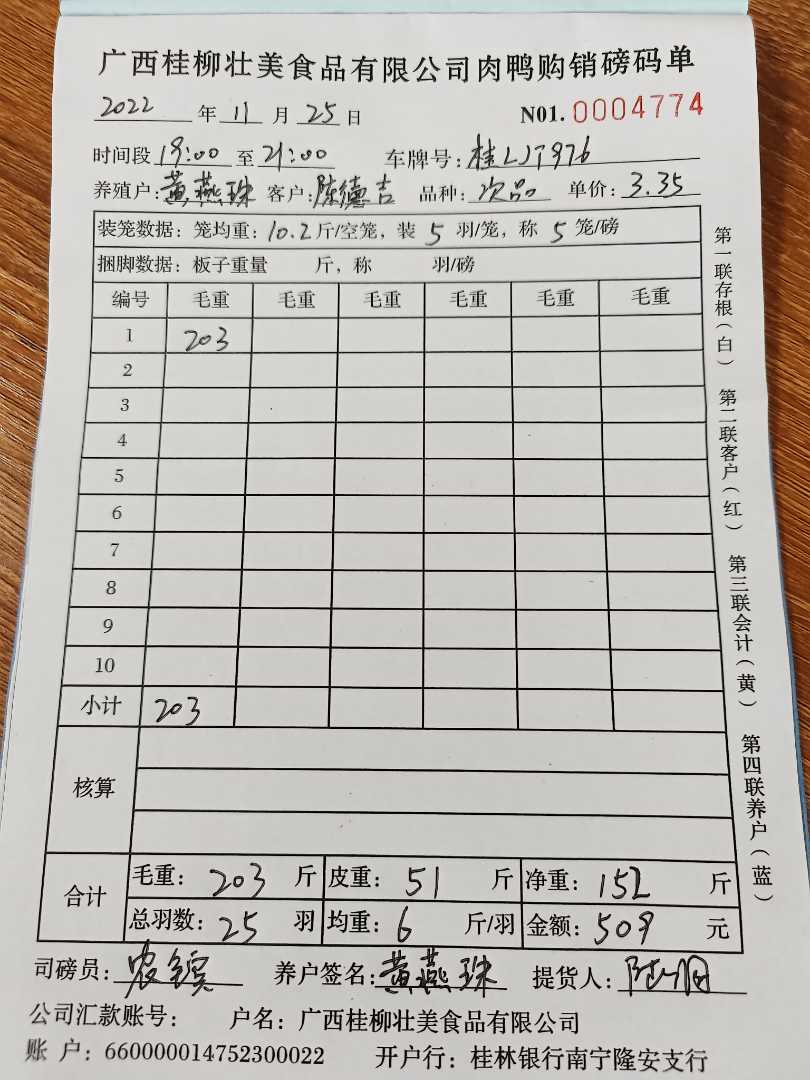 广西桂柳壮美食品有限公司肉鸭购销磅码单
2022 年 11 月 25 日 N01. 0004774
时间段 19:00 至 21:00 车牌号: 桂LJT976
养殖户: 黄燕珠 客户: 陈德吉 品种: 次品 单价: 3.35
装笼数据: 笼均重: 10.2 斤/空笼, 装 5 羽/笼, 称 5 笼/磅
捆脚数据: 板子重量 斤, 称 羽/磅
编号 毛重 毛重 毛重 毛重 毛重 毛重
1 203
2
3
4
5
6
7
8
9
10
小计 203
核算
合计 毛重: 203 斤 皮重: 51 斤 净重: 152 斤
总羽数: 25 羽 均重: 6 斤/羽 金额: 509 元
司磅员: 农 养户签名: 黄燕珠 提货人:
公司汇款账号: 户名: 广西桂柳壮美食品有限公司
账 户: 660000014752300022 开户行: 桂林银行南宁隆安支行
第一联存根(白) 第二联客户(红) 第三联会计(黄) 第四联养户(蓝)